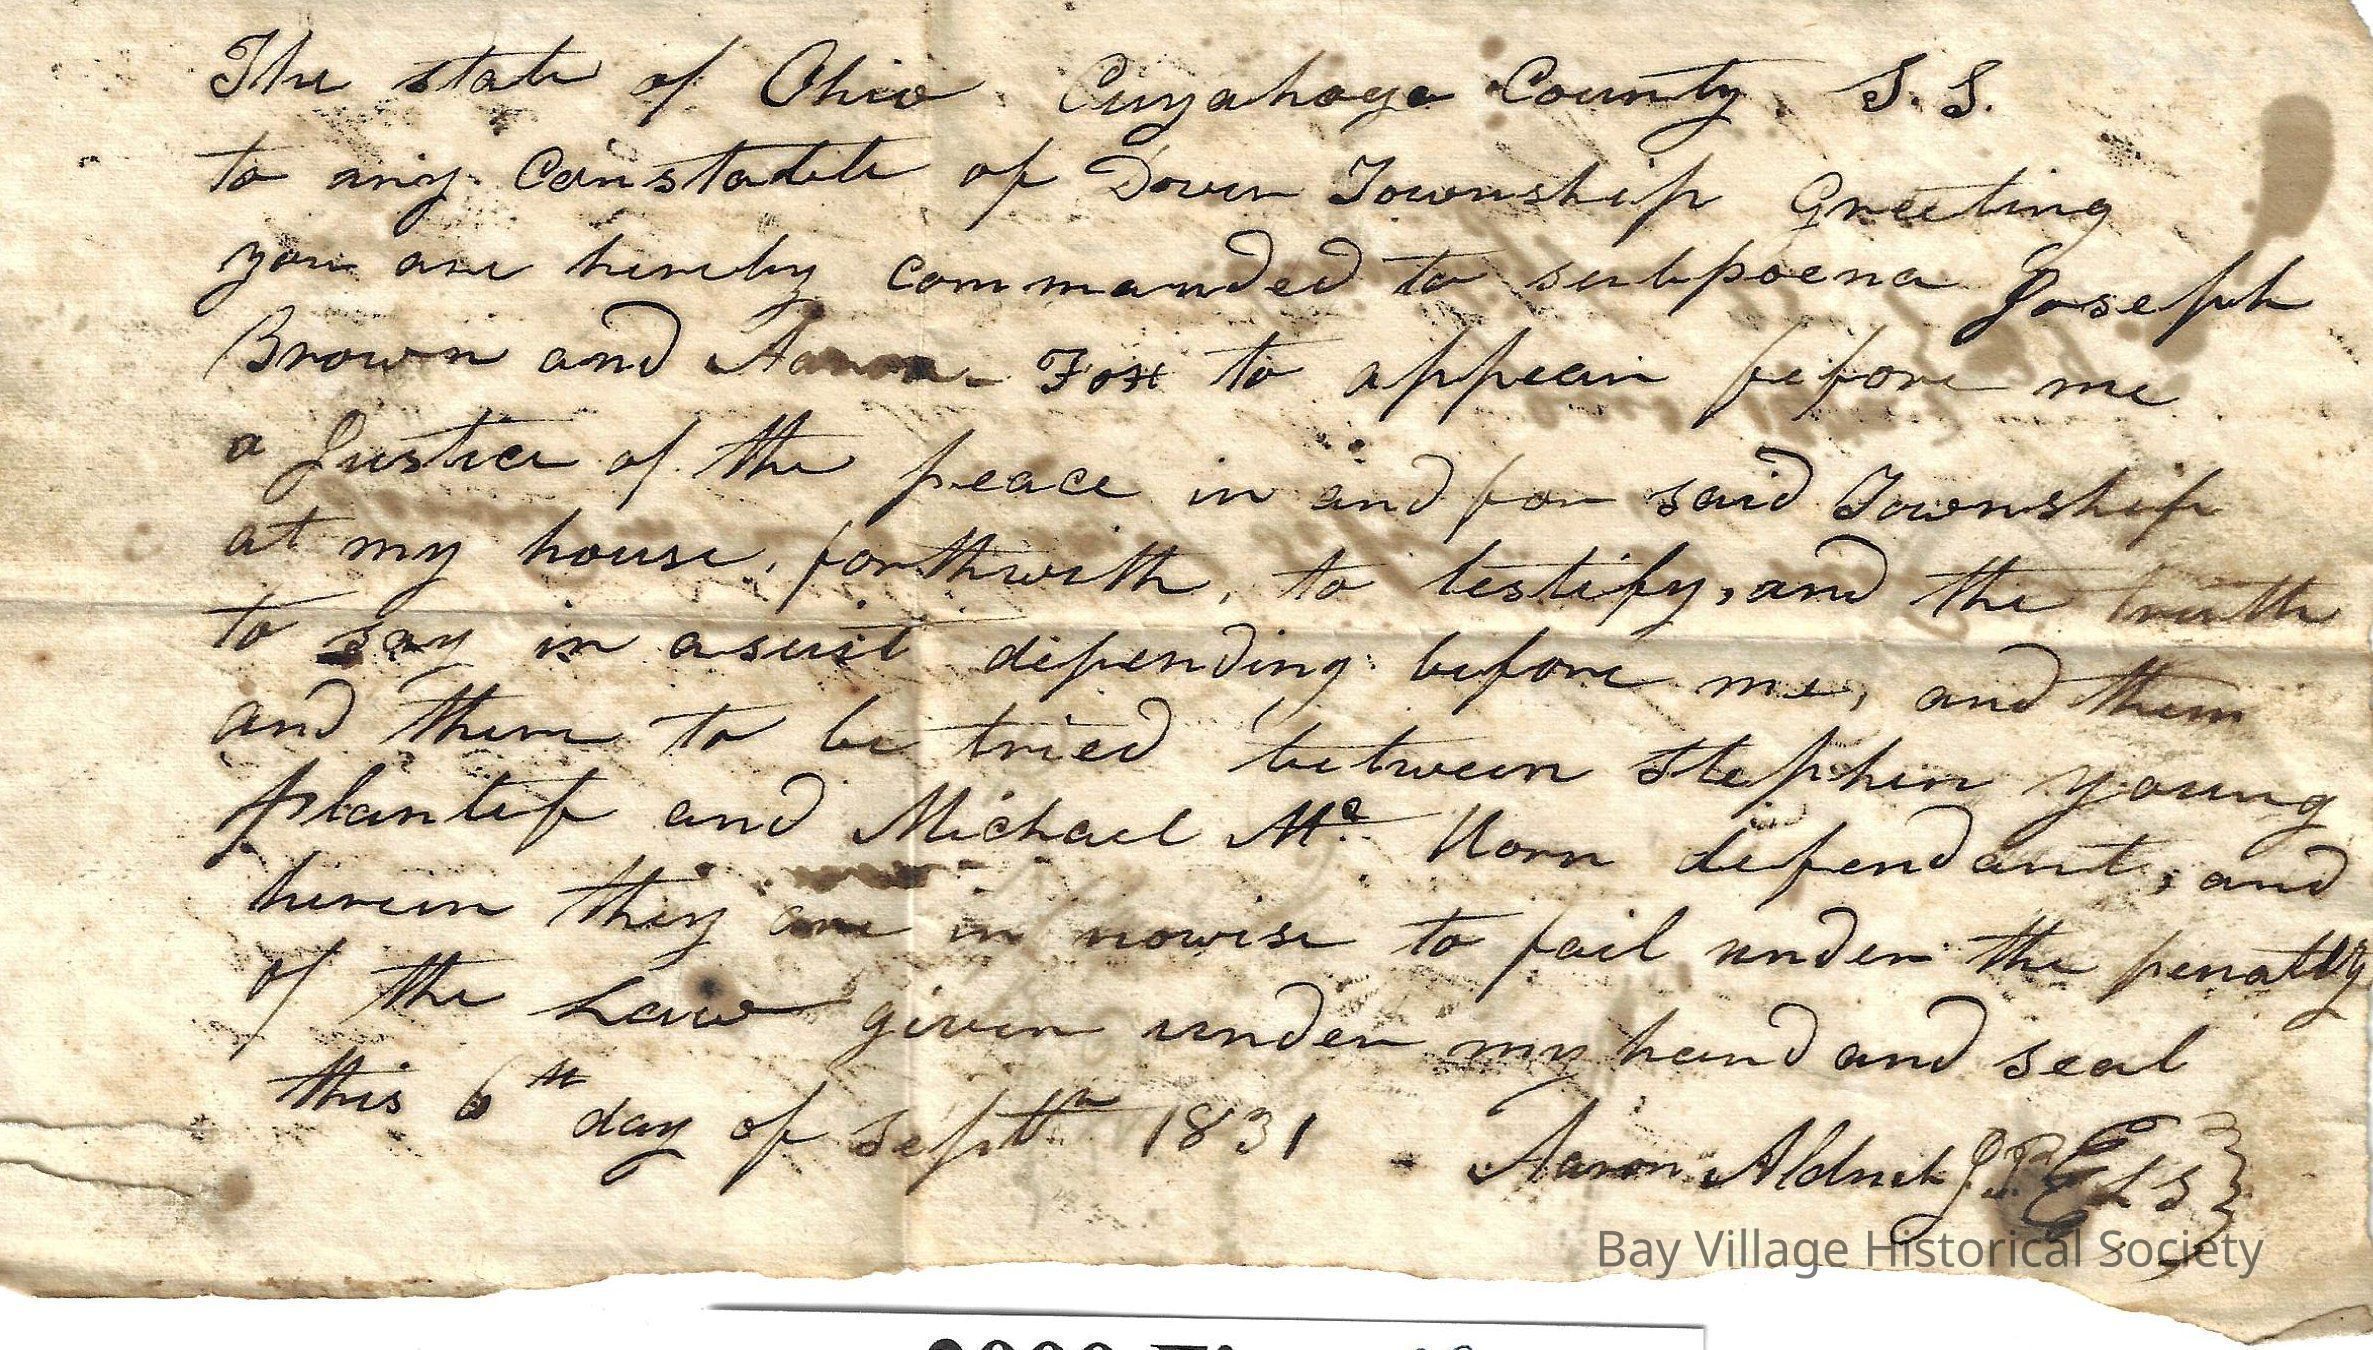 The state of Ohio Cuyahoga County S.S.
to any Constable of Dover Township Greeting
you are hereby commanded to subpoena Joseph
Brown and Aaron Fox to appear before me
a Justice of the peace in and for said Township
at my house, forthwith, to testify, and the truth
to say in a suit depending before me, and then
and there to be tried between Stephen young
plantif and Michael Mc Horn defendant, and
herein they are in nowise to fail under the penalty
of the Law given under my hand and seal
this 6th day of Septm 1831
Aaron Aldrich J.P. {LS}
Bay Village Historical Society